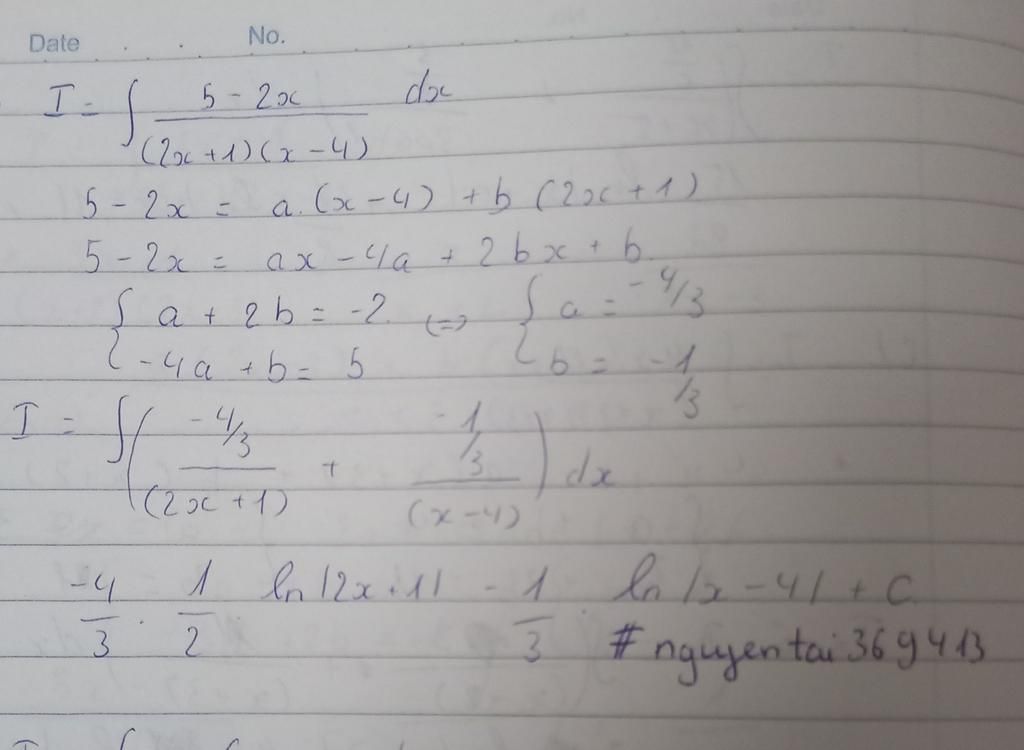 Date No.
I = ∫ (5 - 2x)/((2x+1)(x-4)) dx
5 - 2x = a.(x-4) + b(2x+1)
5 - 2x = ax - 4a + 2bx + b
{ a + 2b = -2 <=> { a = -4/3
{ -4a + b = 5 { b = -1/3
I = ∫( (-4/3)/(2x+1) + (-1/3)/(x-4) ) dx
-4/3 . 1/2 ln|2x+1| - 1/3 . ln|x-4| + C
# nguyentai369413